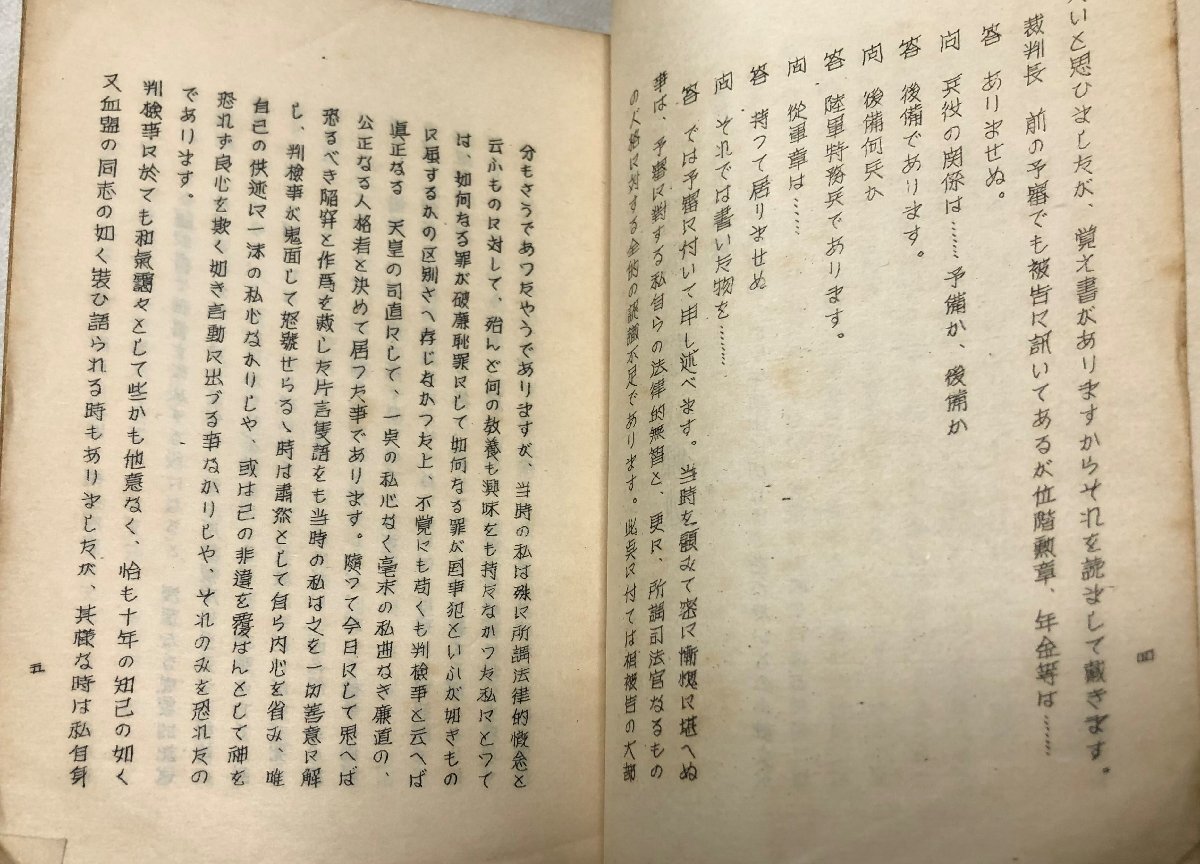 いと思ひましたが、覚え書がありますからそれを読まして戴きます。
裁判長 前の予審でも被告に訊いてあるが位階勲章、年金等は……
答 ありませぬ。
問 兵役の関係は……予備か、後備か
答 後備であります。
問 後備何兵か
答 陸軍特務兵であります。
問 從軍章は……
答 持つて居りませぬ
問 それでは書いた物を……
答 では予審に付いて申し述べます。当時を顧みて密に慚愧に堪へぬ
事は、予審に對する私自らの法律的無智と、更に、所謂司法官なるもの
の人格に対する全的の認識不足であります。此点に付ては相被告の大部
四
分もさうであつたやうでありますが、当時の私は殊に所謂法律的概念と
云ふものに対して、殆んど何の教養も興味をも持たなかつた私にとつて
は、如何なる罪が破廉恥罪にして如何なる罪が国事犯といふが如きもの
に屈するかの区別さへ存じなかつた上、不覚にも苟くも判檢事と云へば
眞正なる 天皇の司直にして、一点の私心なく毫末の私曲なき廉直の、
公正なる人格者と決めて居つた事であります。隨つて今日にして思へば
恐るべき陥穽と作為を蔵した片言隻語をも当時の私は之を一切善意に解
し、判檢事が鬼面して怒號せらるゝ時は肅然として自ら内心を省み、唯
自己の供述に一沫の私心なかりしや、或は己の非違を覆はんとして神を
恐れず良心を欺く如き言動に出づる事なかりしや、それのみを恐れたの
であります。
判檢事に於ても和氣靄々として些かも他意なく、恰も十年の知己の如く
又血盟の同志の如く装ひ語られる時もありましたが、其樣な時は私自身
五